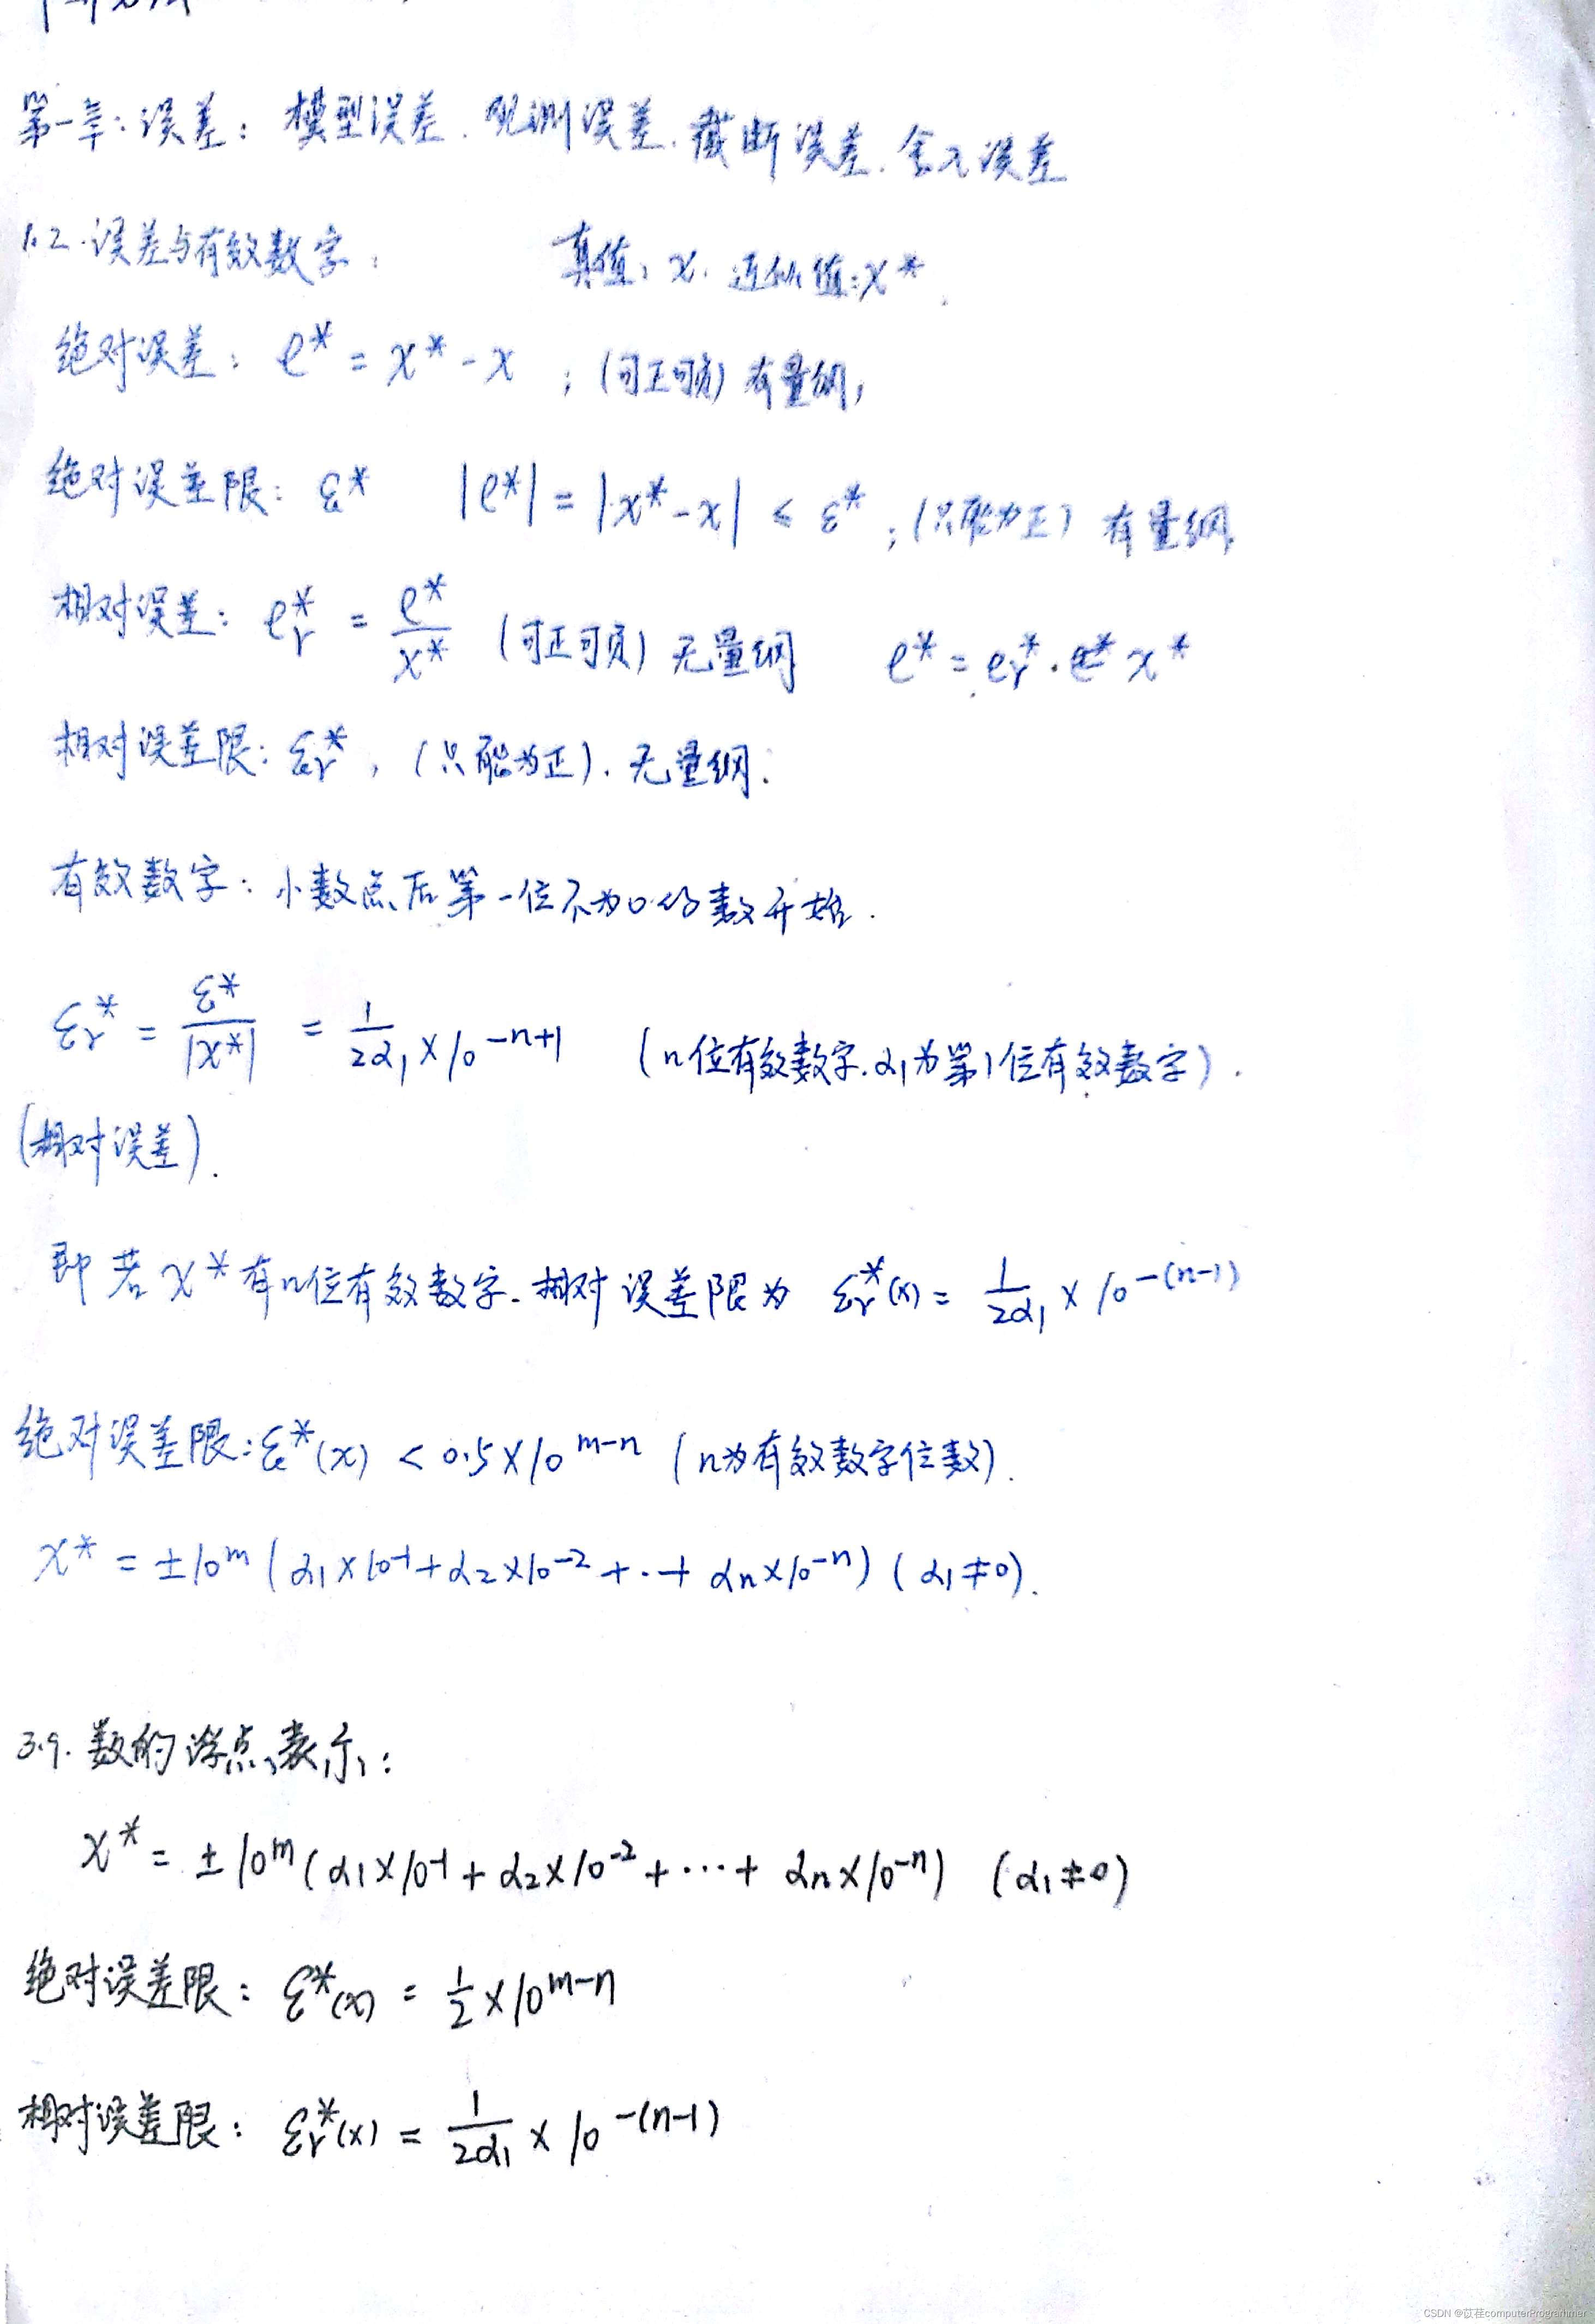 第一章:误差: 模型误差.观测误差.截断误差.舍入误差
1.2.误差与有效数字: 真值:x. 近似值:x*.
绝对误差: e* = x* - x ; (可正可负) 有量纲,
绝对误差限: ε* |e*| = |x* - x| ≤ ε* ; (只能为正) 有量纲,
相对误差: e_r* = e*/x* (可正可负) 无量纲 e* = e_r* · x*
相对误差限: ε_r* , (只能为正). 无量纲.
有效数字: 小数点后第一位不为0的数开始.
ε_r* = ε*/|x*| = 1/(2α₁) × 10^(-n+1) (n位有效数字.α₁为第1位有效数字).
(相对误差).
即若x*有n位有效数字.相对误差限为 ε_r*(x) = 1/(2α₁) × 10^(-(n-1))
绝对误差限:ε*(x) < 0.5×10^(m-n) (n为有效数字位数).
x* = ±10^m (α₁×10^-1 + α₂×10^-2 + ·· + αn×10^-n) (α₁≠0).
3.9. 数的浮点表示:
x* = ±10^m (α₁×10^-1 + α₂×10^-2 + ··· + αn×10^-n) (α₁≠0)
绝对误差限: ε*(x) = 1/2 × 10^(m-n)
相对误差限: ε_r*(x) = 1/(2α₁) × 10^(-(n-1))
CSDN @苡荏computerProgrammer